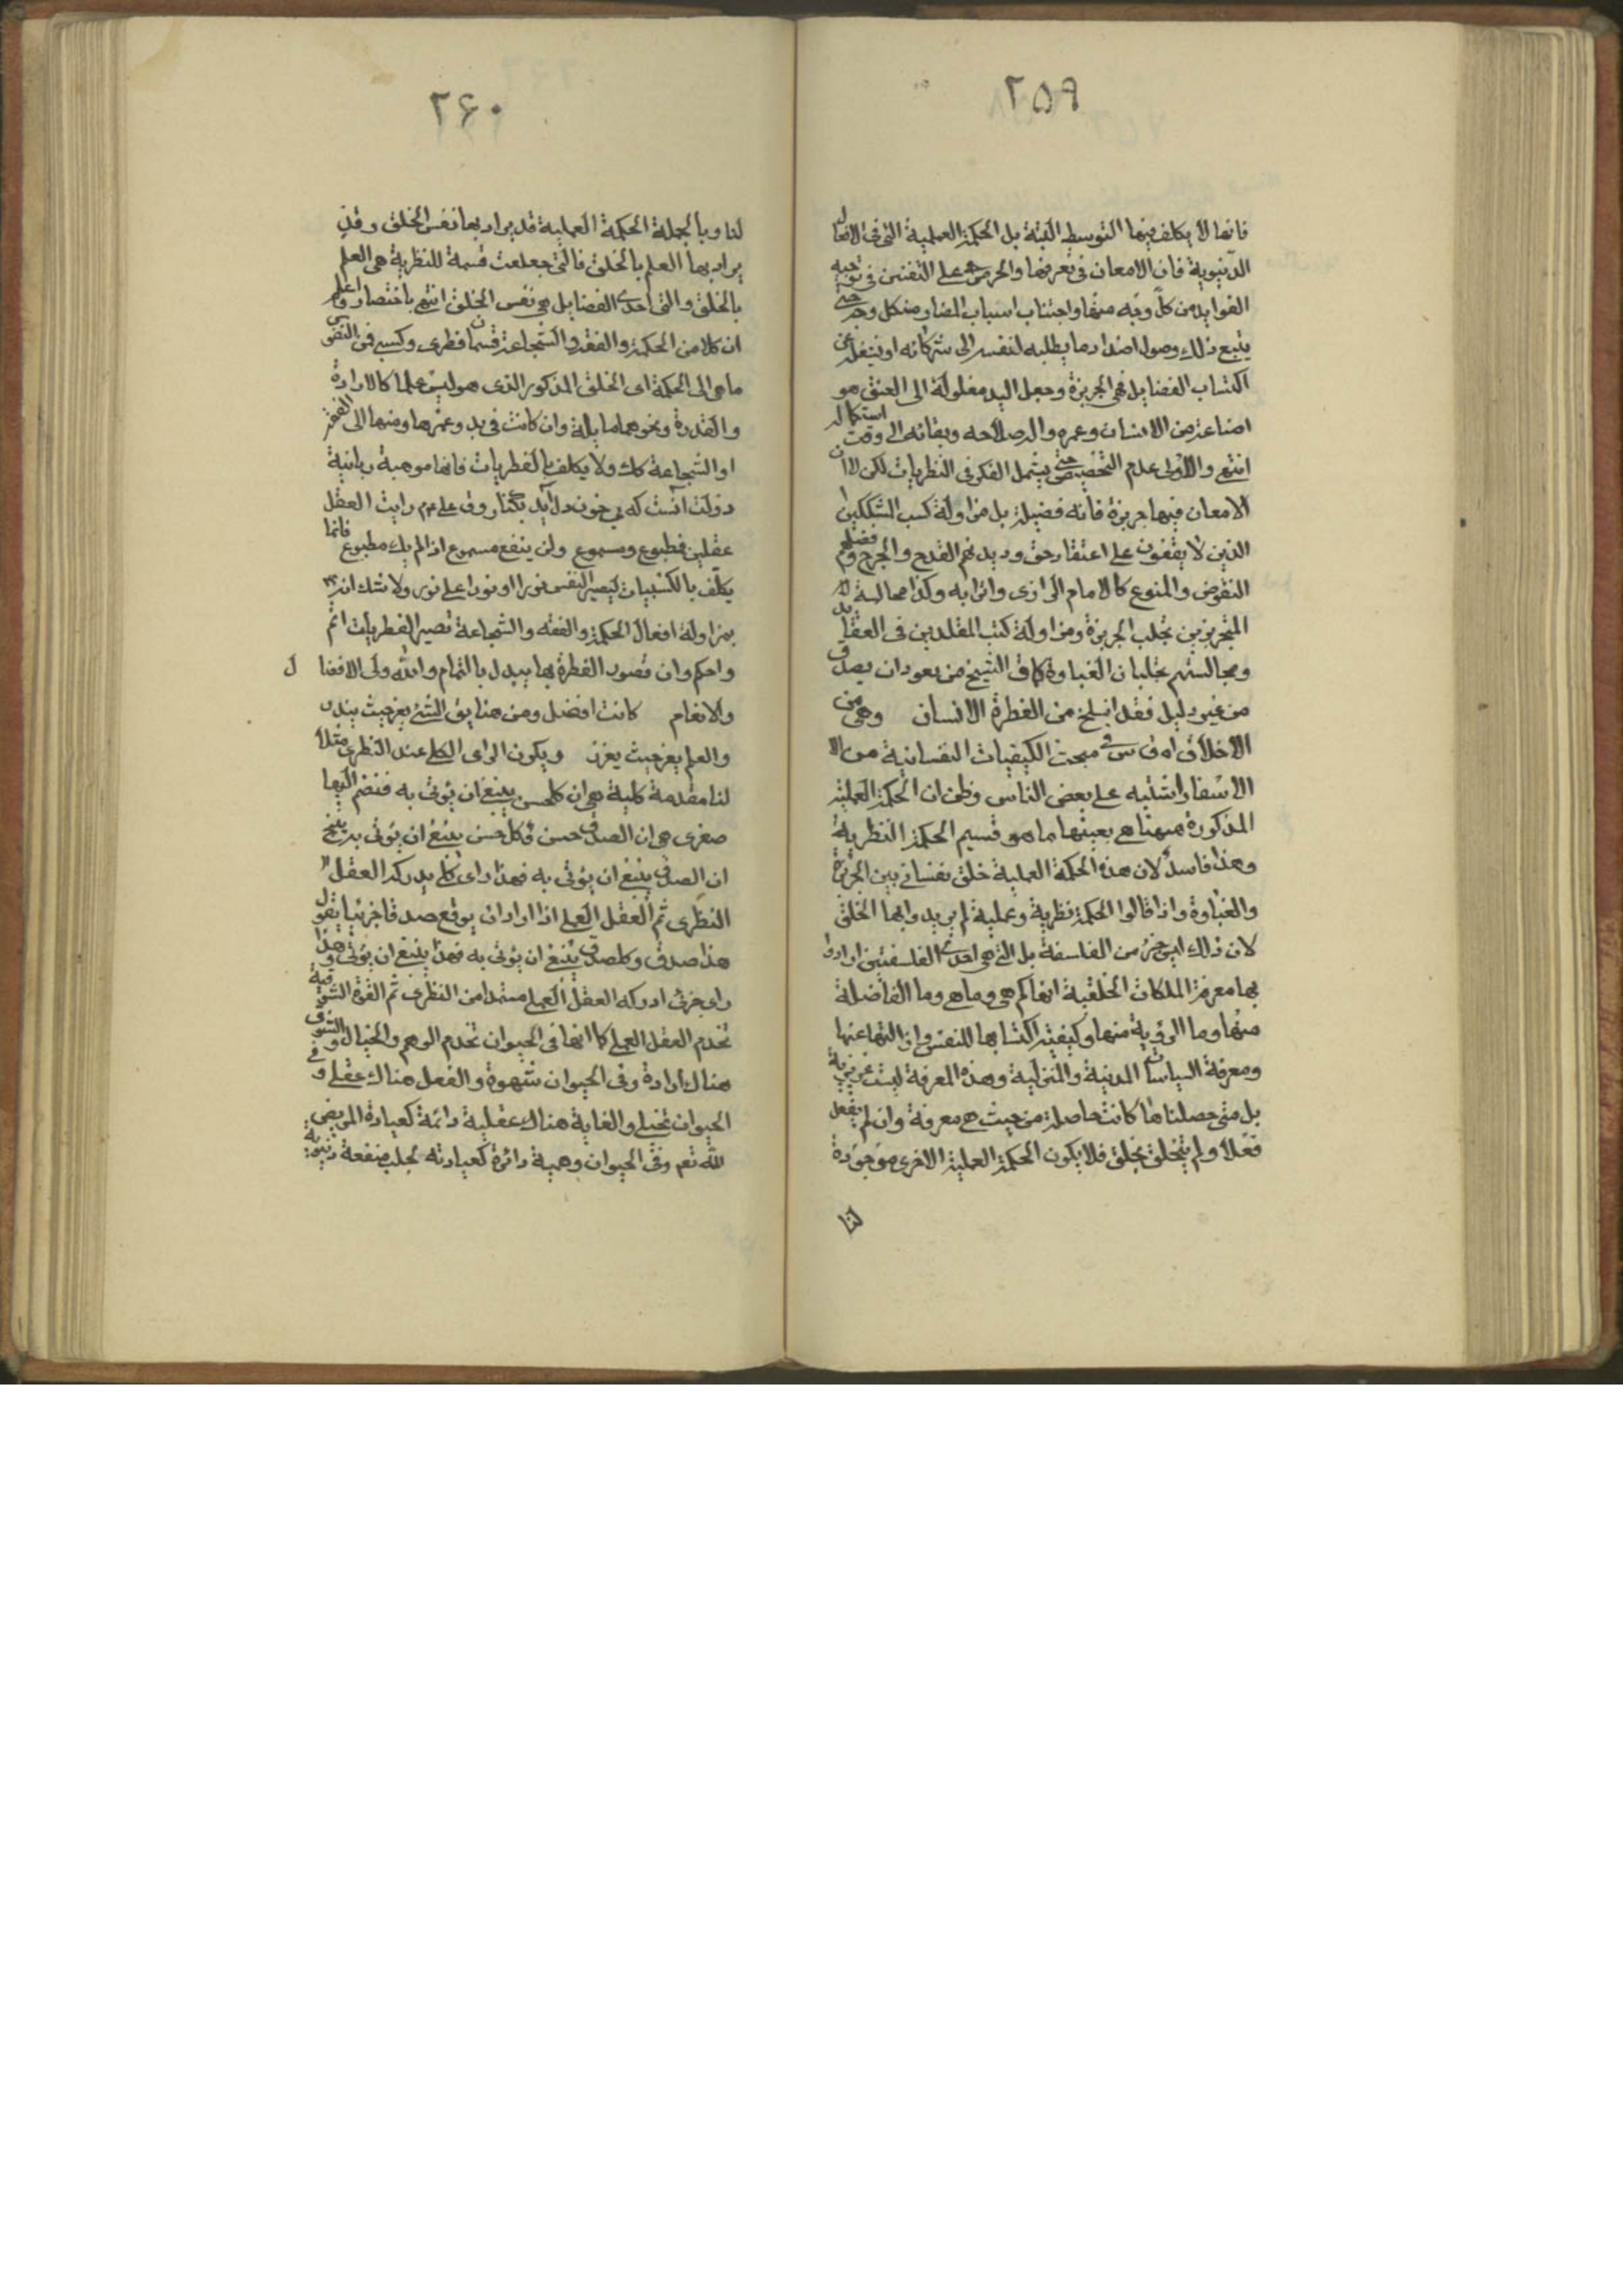 ۲۵۹
فانها لا يكلف فيها التوسط البتة بل الحكمة العملية التى فى الافعال
الدنيوية فان الامعان فى تعرفها والحرص على التفنن فى توجيه
الفوايد من كل وجه منها واجتناب اسباب المضار من كل وجه حتى
يتبع ذلك وصول اضداد ما يطلبه لنفسه الى شركائه او يشغله عن
اكتساب الفضايل فهى الجربزة وجعل اليد مغلولة الى العنق هو
اضاعة من الانسان وعمره والة صلاحه وبقائه الى وقت استكماله
انتهى والاولى عدم التخصيص حتى يشمل الفكر فى النظريات لكن لا ان
الامعان فيها جربزة فانه فضيلة بل مزاولة كتب المشككين
الذين لا يقفون على اعتقاد حق وديدنهم القدح والجرح وفضلهم
النقوض والمنوع كالامام الرازى واترابه وكذا مجالسة
المتجربزين تجلب الجربزة ومزاولة كتب المقلدين فى العقايد
ومجالستهم تجلبان الغباوة كما قال الشيخ من تعود ان يصدق
من غير دليل فقد انسلخ من الفطرة الانسان وهى من
الاخلاق اه قال س فى مبحث الكيفيات النفسانية من
الاسفار اشتبه على بعض الناس وظن ان الحكمة العملية
المذكورة ههنا هى بعينها ما هو قسيم الحكمة النظرية
وهذا فاسد لان هذه الحكمة العملية خلق نفسانى بين الجربزة
والغباوة واذا قالوا الحكمة نظرية وعملية لم يريدوا بها الخلق
لان ذلك ليس جزء من الفلسفة بل التى هى احدى الفلسفتين ارادوا
بها معرفة الملكات الخلقية انها كم هى وما هى وما الفاضلة
منها وما الردية منها وكيفية اكتسابها للنفس وازالتها عنها
ومعرفة السياسات المدنية والمنزلية وهذه المعرفة ليست غريزية
بل متى حصلناها كانت حاصلة من حيث هى معرفة وان لم يفعل
فعلا ولم يتخلق بخلق فلا يكون الحكمة العملية الاخرى موجودة
لنا
۲۶۰
لنا وبالجملة الحكمة العملية قد يراد بها نفس الخلق وقد
يراد بها العلم بالخلق فالتى جعلت قسمة للنظرية هى العلم
بالخلق والتى احدى الفضايل هى نفس الخلق انتهى باختصار واعلم
ان كلا من الحكمة والعفة والشجاعة قسمان فطرى وكسبى فمن النفوس
ما هى الى الحكمة اى الخلق المذكور الذى هو ليس علما كالارادة
والقدرة ونحوهما مايلة وان كانت فى يد وعمرها ومنها الى العفة
او الشجاعة كك ولا يكلف بالفطريات فانها موهبة ربانية
دولت آنست كه بى خون دل آيد بكنار وق على ع م رايت العقل
عقلين فمطبوع ومسموع ولن ينفع مسموع اذا لم يك مطبوع فانما
يكلف بالكسبيات ليصير النفس نورا او نورا على نور ولا شك انه
بمزاولة افعال الحكمة والعفة والشجاعة تصير الفطريات اتم
واحكم وان قصور الفطرة بها يبدل بالتمام والله ولى الافضال
والانعام كانت افضل ومن هنا يق الشئ يعز حيث يندر
والعلم يعز حيث يغزر ويكون الراى الكلى عند النظرى مثلا
لنا مقدمة كلية هى ان كل حسن ينبغى ان يؤتى به فنضم اليها
صغرى هى ان الصدق حسن وكل حسن ينبغى ان يؤتى به ينتج
ان الصدق ينبغى ان يؤتى به فهذا راى كلى يدركه العقل
النظرى ثم العقل العملى اذا اراد ان يوقع صدقا جزئيا يقول
هذا صدق وكل صدق ينبغى ان يؤتى به فهذا ينبغى ان يؤتى به وهذا
راى جزئى ادركه العقل العملى مستمدا من النظرى ثم القوة الشوقية
تخدم العقل العملى كما انها فى الحيوان تخدم الوهم والخيال والشوق
هناك ارادة وفى الحيوان شهوة والفعل هناك عقلى وفى
الحيوان تخيلى والغاية هناك عقلية دائمة كعيادة المريض
لله تعم وفى الحيوان وهمية داثرة كعيادته لجلب منفعة دنيوية